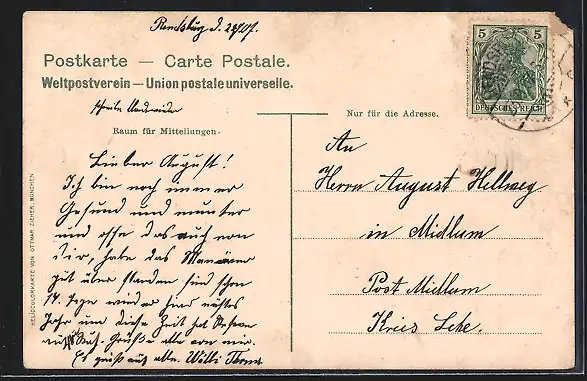 Rendsburg d. 29/7 07.
Postkarte — Carte Postale.
Weltpostverein — Union postale universelle.
schreibe bald wieder
Raum für Mitteilungen.
Nur für die Adresse.
5 5
DEUTSCHES REICH
Lieber August!
Ich bin noch immer
Gesund und munter
und hoffe das auch von
Dir, habe das Manöver
gut über standen sind schon
14 Tage wieder hier nächstes
Jahr um diese Zeit hat Reserve
Ruh. Grüße alle von mir.
Es grüßt auch alle. Willi
An
Herrn August Hellweg
in Midlum
Post Midlum
Kreis Lehe.
HELIOCOLORKARTE VON OTTMAR ZIEHER, MÜNCHEN